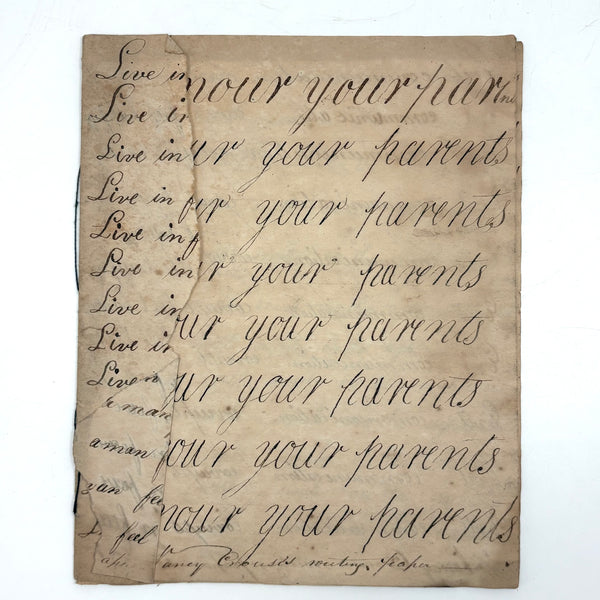 Live in nour your par
Live in ur your parents
Live in ur your parents
Live in ur your parents
Live in r your parents
Live in ur your parents
Live in ur your parents
Live in our your parents
Live n nour your parents
a man
a man
feel
feel
Nancy writing paper